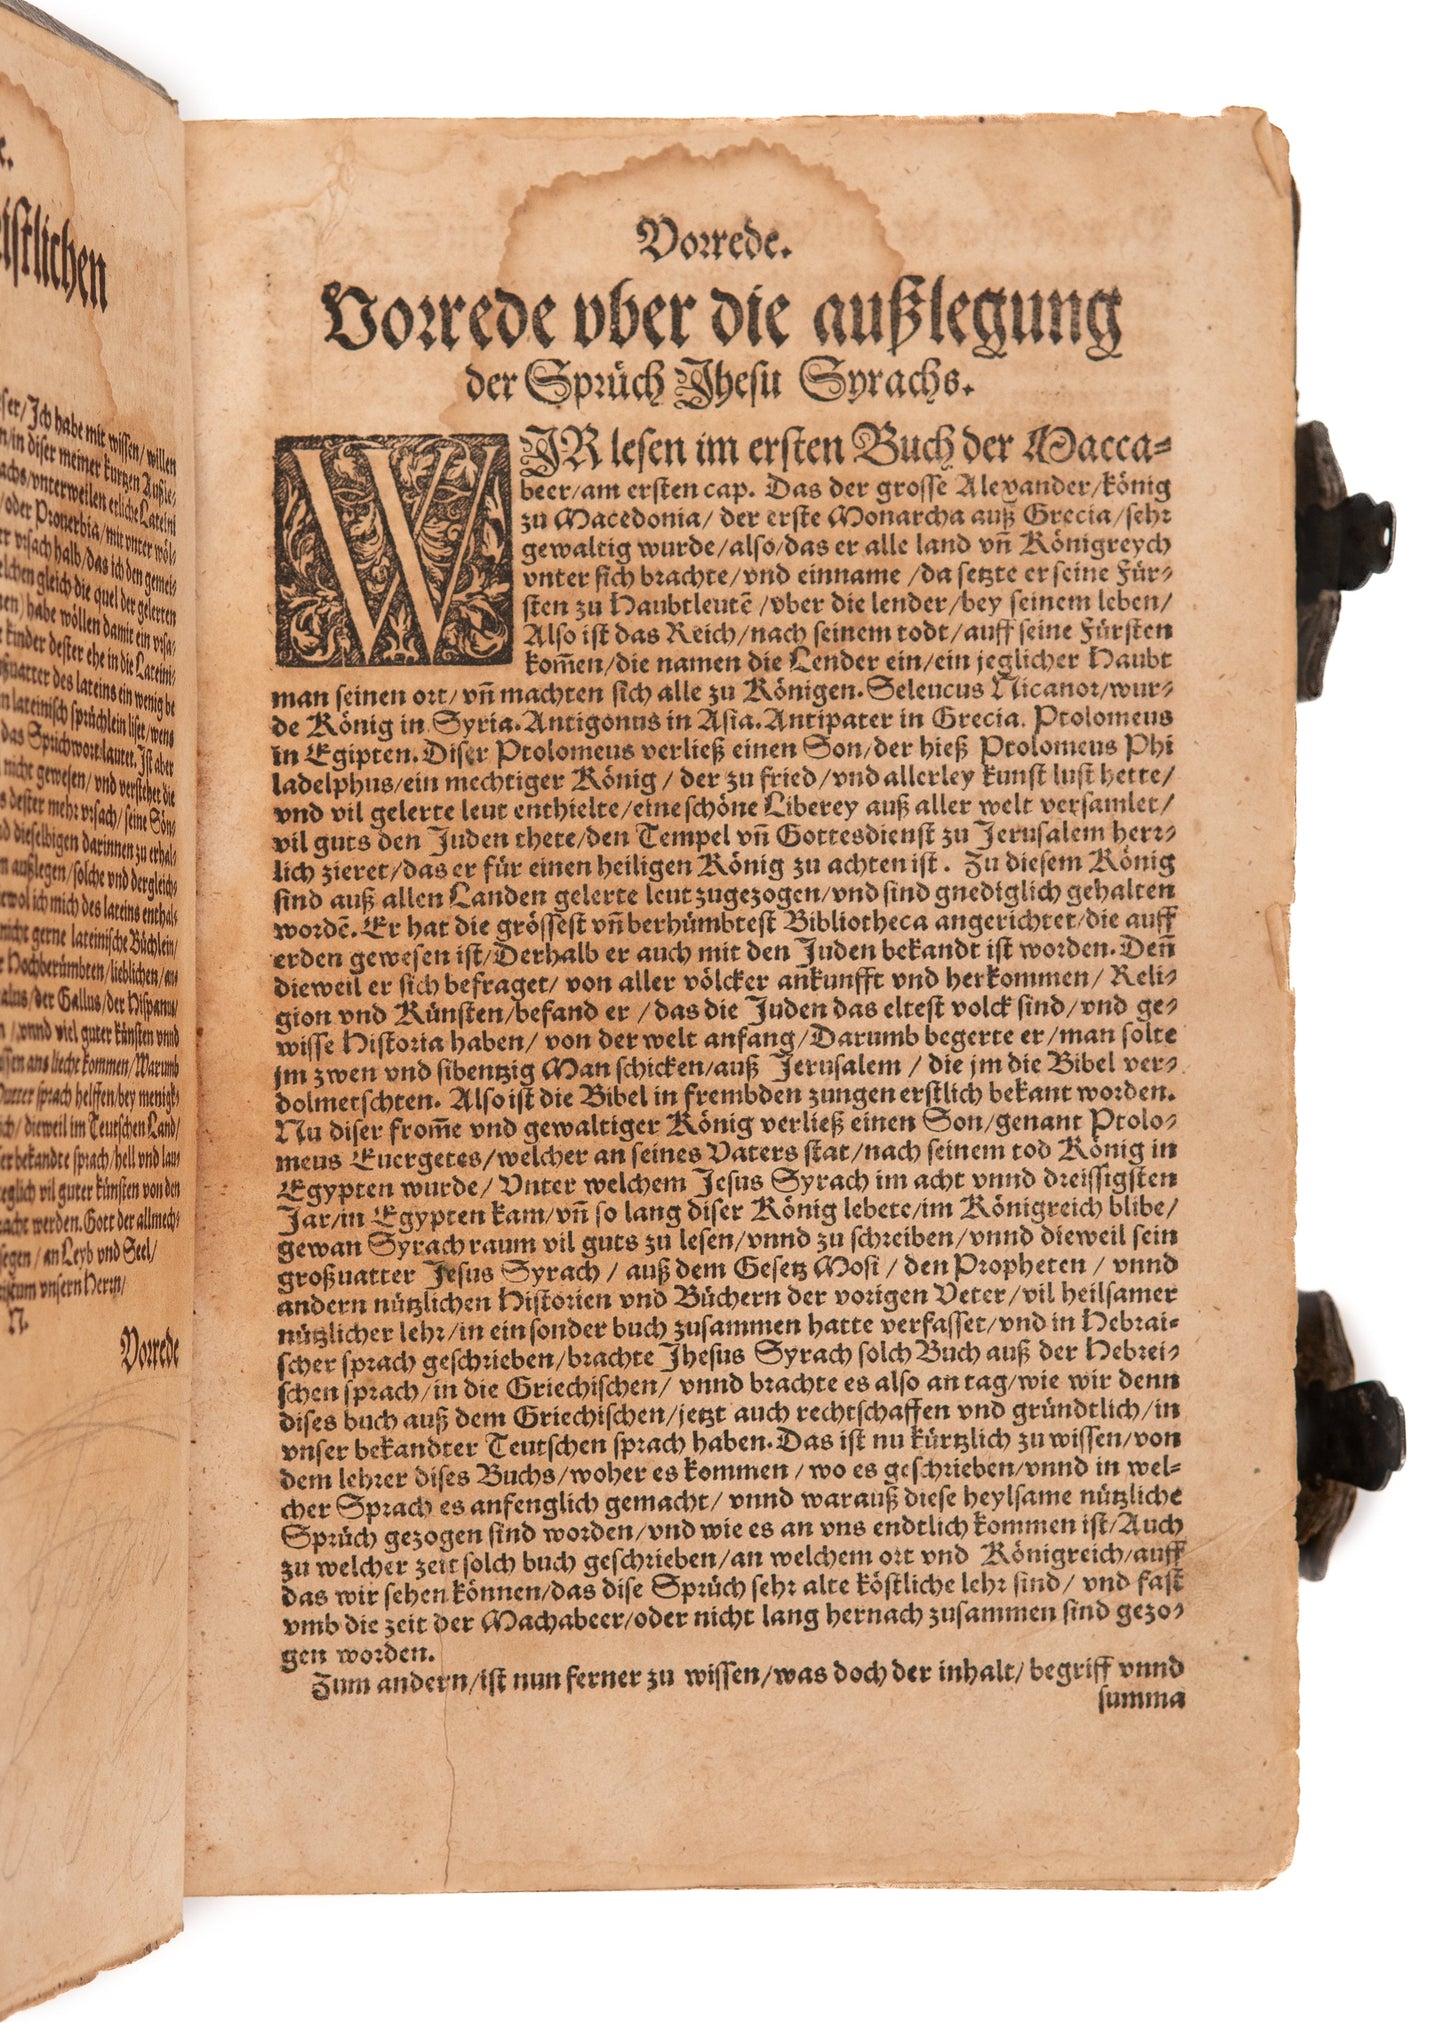 e.
eistlichen
ser/Ich habe mit wissen/willen
n/in diser meiner kurtzen Außle-
achs/vnterweilen etliche Lateini
/oder Prouerbia/mit vnter wöl-
vrsach halb/das ich den gemei-
elchen gleich die quel der gelerten
nen) habe wöllen damit ein vrsa-
kinder dester ehe in die Lateini-
ßuatter des lateins ein wenig be
n lateinisch sprüchlein liset/wens
das Sprüchwort lautet. Ist aber
nicht gewesen/vnd verstehet die
s dester mehr vrsach/seine Sön-
d dieselbigen darinnen zu erhal-
m außlegen/solche vnd dergleich-
wol ich mich des lateins enthal-
nicht gerne lateinische Büchlein/
r Hochberümbten/lieblichen/an-
alus/der Gallus/der Hispanus/
n/vnnd viel guter künsten vnnd
ssen ans liecht kommen/Warumb
Mutter sprach helffen/bey menigk-
ch/dieweil im Teutschen Land/
ser bekandte sprach/hell vnd lau-
eglich vil guter künsten von den
racht werden. Gott der allmech-
segen/an Leyb vnd Seel/
istum vnsern Herrn/
N.
Vorrede
Vorrede.
Vorrede vber die außlegung
der Sprüch Jhesu Syrachs.
WIR lesen im ersten Buch der Macca-
beer/am ersten cap. Das der grosse Alexander/könig
zu Macedonia/ der erste Monarcha auß Grecia/sehr
gewaltig wurde/also/das er alle land vñ Königreych
vnter sich brachte/vnd einname /da setzte er seine Für-
sten zu Haubtleutē /vber die lender/bey seinem leben/
Also ist das Reich/nach seinem todt/auff seine Fürsten
kom̄en/die namen die Lender ein/ein jeglicher Haubt
man seinen ort/ vñ machten sich alle zu Königen. Seleucus Nicanor/wur-
de König in Syria. Antigonus in Asia. Antipater in Grecia. Ptolomeus
in Egipten. Diser Ptolomeus verließ einen Son/der hieß Ptolomeus Phi
ladelphus/ein mechtiger König / der zu fried/vnd allerley kunst lust hette/
vnd vil gelerte leut enthielte/eine schöne Liberey auß aller welt versamlet/
vil guts den Juden thete/den Tempel vñ Gottesdienst zu Jerusalem herr-
lich zieret/das er für einen heiligen König zu achten ist. Zu diesem König
sind auß allen Landen gelerte leut zugezogen/vnd sind gnediglich gehalten
wordē. Er hat die grössest vñ berhümbtest Bibliotheca angerichtet/die auff
erden gewesen ist/Derhalb er auch mit den Juden bekandt ist worden. Deñ
dieweil er sich befraget/ von aller völcker ankunfft vnd herkommen/ Reli-
gion vnd Künsten/befand er /das die Juden das eltest volck sind/vnd ge-
wisse Historia haben/ von der welt anfang/Darumb begerte er/man solte
jm zwen vnd sibentzig Man schicken/auß Jerusalem / die jm die Bibel ver-
dolmetschten. Also ist die Bibel in frembden zungen erstlich bekant worden.
Nu diser from̄e vnd gewaltiger König verließ einen Son/genant Ptolo-
meus Euergetes/welcher an seines Vaters stat/nach seinem tod König in
Egypten wurde/ Vnter welchem Jesus Syrach im acht vnnd dreissigsten
Jar/in Egypten kam/vñ so lang diser König lebete/im Königreich blibe/
gewan Syrach raum vil guts zu lesen/vnnd zu schreiben/vnnd dieweil sein
großuatter Jesus Syrach / auß dem Gesetz Mosi / den Propheten / vnnd
andern nützlichen Historien vnd Büchern der vorigen Veter/vil heilsamer
nützlicher lehr/in ein sonder buch zusammen hatte verfasset/vnd in Hebrai-
scher sprach geschrieben/brachte Jhesus Syrach solch Buch auß der Hebrei-
schen sprach/in die Griechischen/ vnnd brachte es also an tag/wie wir denn
dises buch auß dem Griechischen/jetzt auch rechtschaffen vnd gründtlich/in
vnser bekandter Teutschen sprach haben. Das ist nu kürtzlich zu wissen/von
dem lehrer dises Buchs/woher es kommen / wo es geschrieben/vnnd in wel-
cher Sprach es anfenglich gemacht/ vnnd warauß diese heylsame nützliche
Sprüch gezogen sind worden/vnd wie es an vns endtlich kommen ist/Auch
zu welcher zeit solch buch geschrieben/an welchem ort vnd Königreich/auff
das wir sehen können/das dise Sprüch sehr alte köstliche lehr sind/ vnd fast
vmb die zeit der Machabeer/oder nicht lang hernach zusammen sind gezo-
gen worden.
Zum andern/ist nun ferner zu wissen/was doch der inhalt/ begriff vnnd
summa